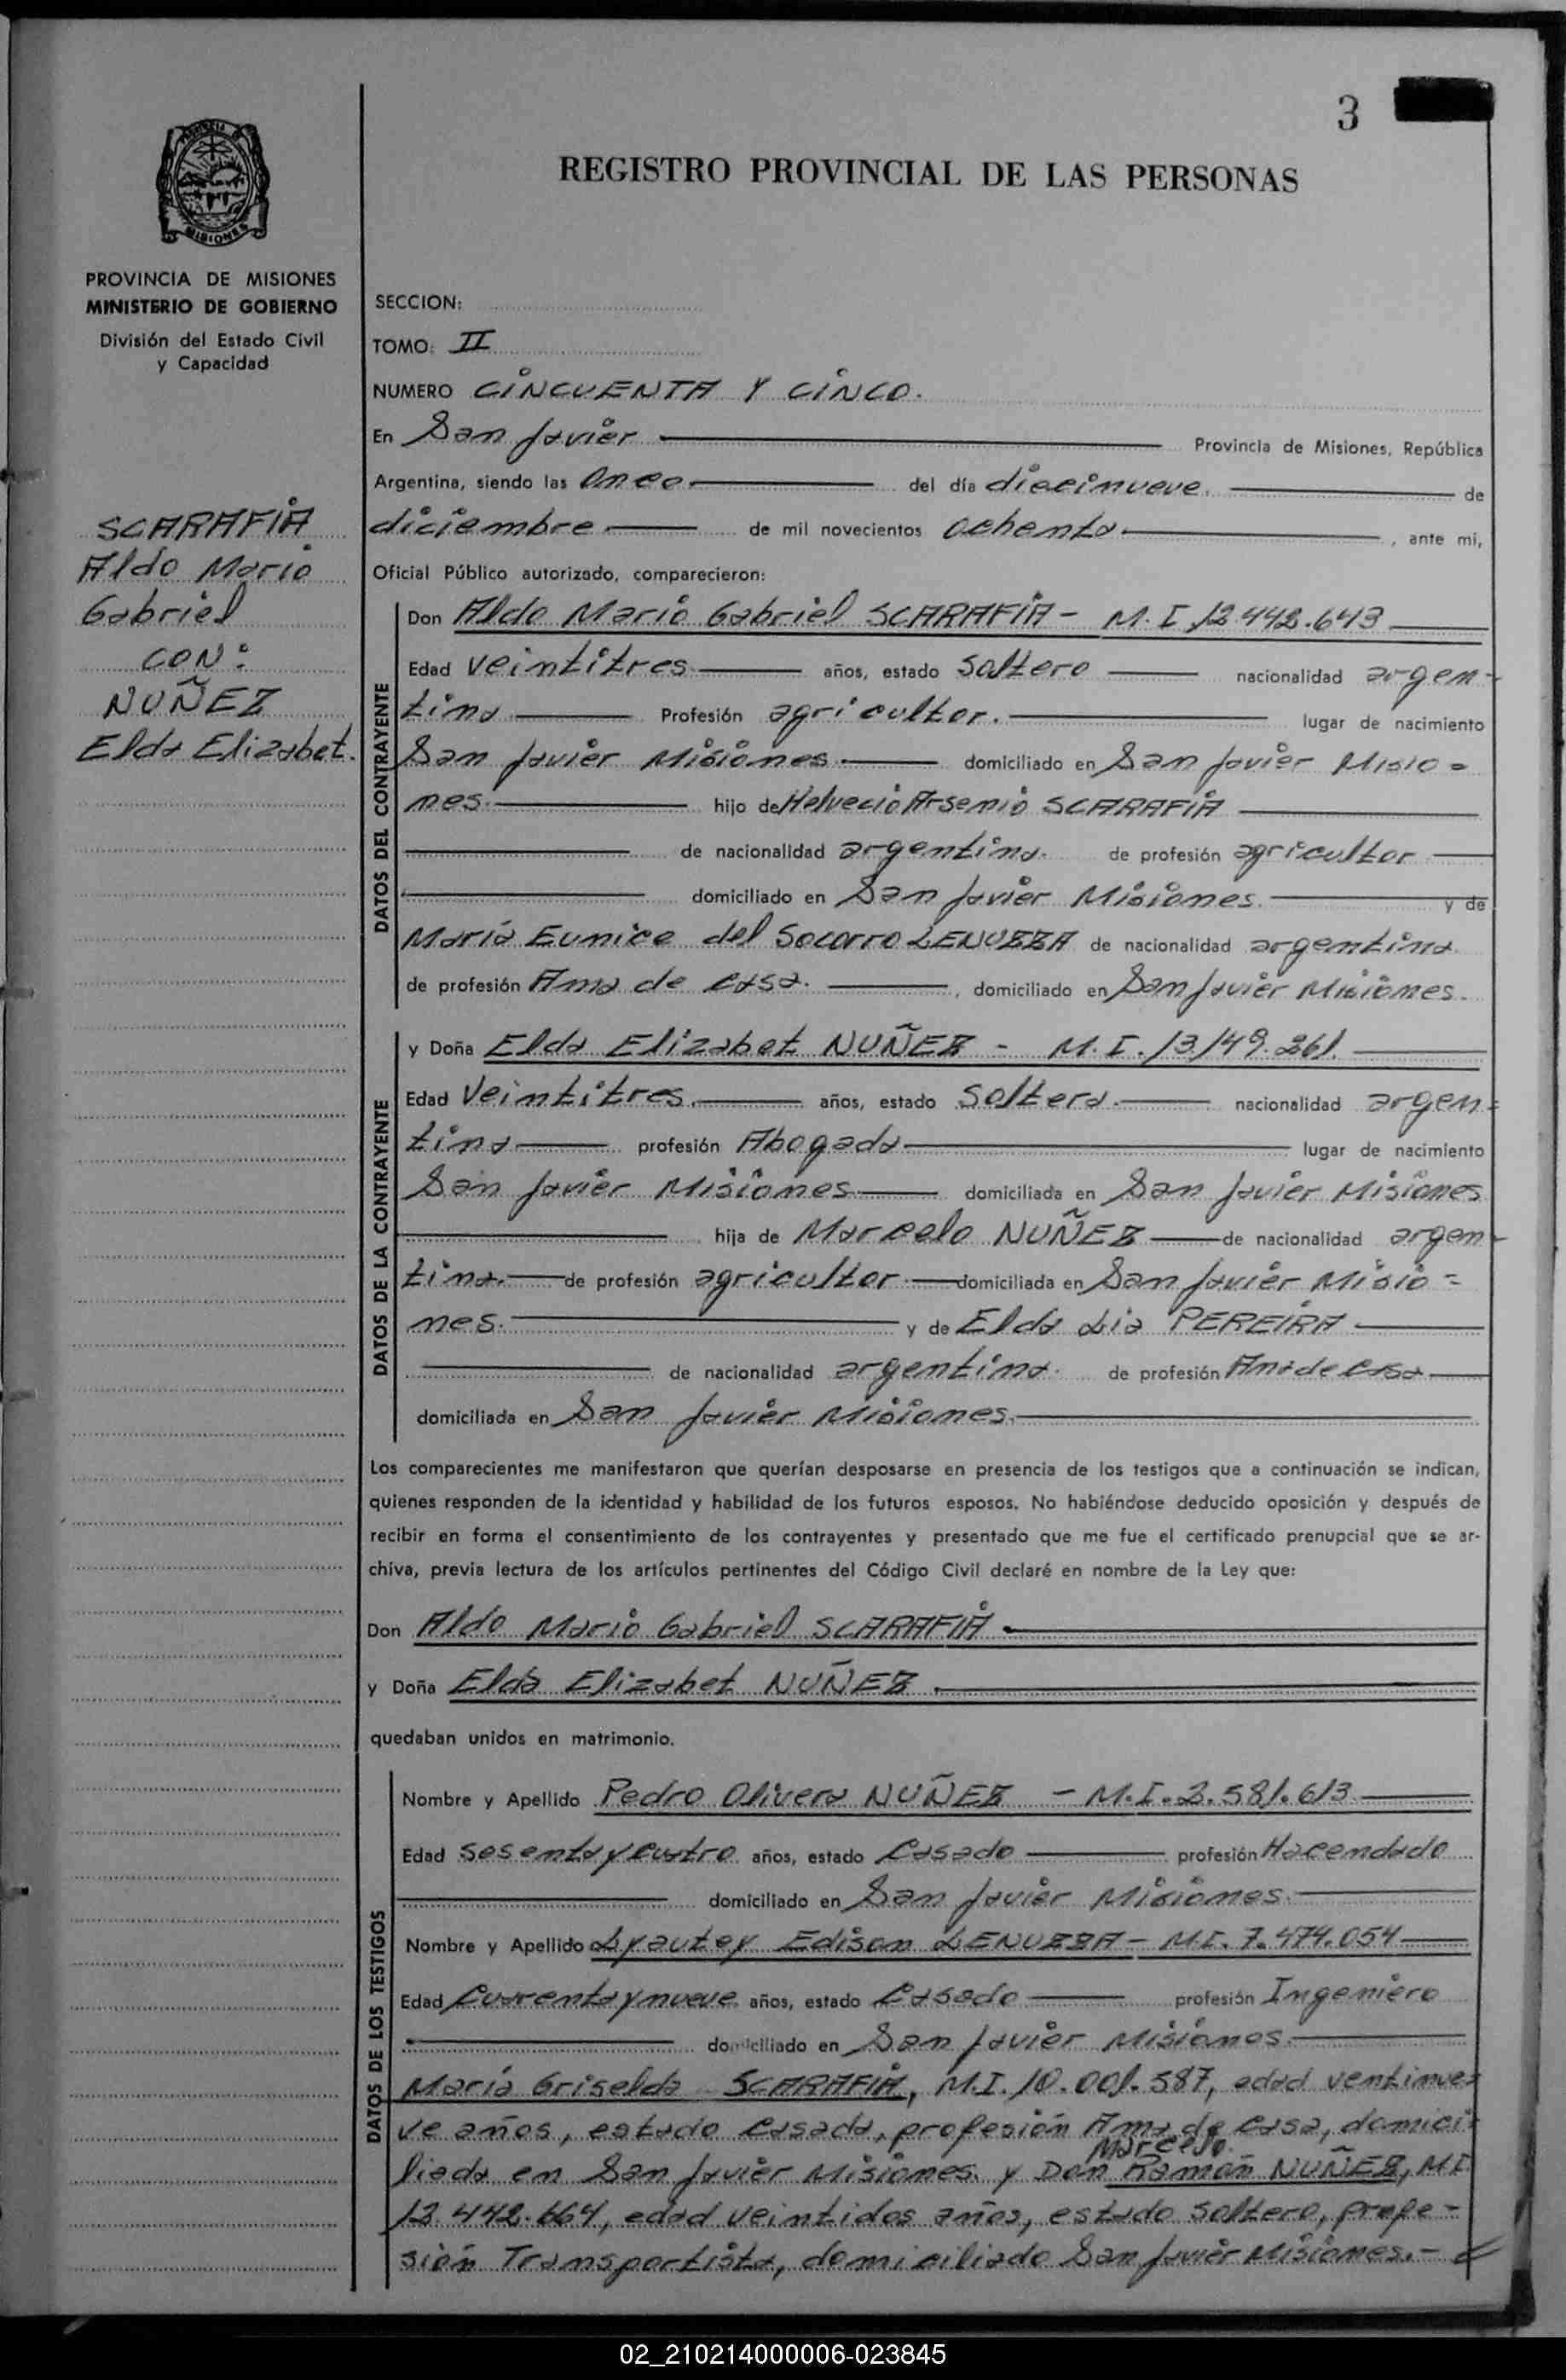 3
REGISTRO PROVINCIAL DE LAS PERSONAS
PROVINCIA DE MISIONES
MINISTERIO DE GOBIERNO
División del Estado Civil
y Capacidad
SCARAFIA
Aldo Mario
Gabriel
CON:
NUÑEZ
Elda Elizabet.
SECCION:
TOMO: II
NUMERO CINCUENTA Y CINCO.
En San Javier Provincia de Misiones, República
Argentina, siendo las Once del día diecinueve de
diciembre de mil novecientos ochenta, ante mi,
Oficial Público autorizado, comparecieron:
DATOS DEL CONTRAYENTE
Don Aldo Mario Gabriel SCARAFIA - M.I 12.442.643
Edad veintitres años, estado Soltero nacionalidad argen-
tina Profesión agricultor. lugar de nacimiento
San Javier Misiones domiciliado en San Javier Misio=
nes. hijo de Helvecio Arsenio SCARAFIA
de nacionalidad argentina. de profesión agricultor
domiciliado en San Javier Misiones. y de
María Eunice del Socorro LENUZZA de nacionalidad argentina
de profesión Ama de casa., domiciliado en San Javier Misiones.
DATOS DE LA CONTRAYENTE
y Doña Elda Elizabet NUÑEZ - M.I. 13.149.261.
Edad Veintitres años, estado Soltera. nacionalidad argen=
tina profesión Abogada lugar de nacimiento
San Javier Misiones domiciliada en San Javier Misiones
hija de Marcelo NUÑEZ de nacionalidad argen-
tina. de profesión agricultor. domiciliada en San Javier Misio=
nes. y de Elda Lia PEREIRA
de nacionalidad argentina. de profesión Ama de casa
domiciliada en San Javier Misiones.
Los comparecientes me manifestaron que querían desposarse en presencia de los testigos que a continuación se indican,
quienes responden de la identidad y habilidad de los futuros esposos. No habiéndose deducido oposición y después de
recibir en forma el consentimiento de los contrayentes y presentado que me fue el certificado prenupcial que se ar-
chiva, previa lectura de los artículos pertinentes del Código Civil declaré en nombre de la Ley que:
Don Aldo Mario Gabriel SCARAFIA
y Doña Elda Elizabet NUÑEZ.
quedaban unidos en matrimonio.
DATOS DE LOS TESTIGOS
Nombre y Apellido Pedro Olivera NUÑEZ - M.I. 2.581.613
Edad sesenta y cuatro años, estado Casado profesión Hacendado
domiciliado en San Javier Misiones.
Nombre y Apellido Lyautey Edison LENUZZA - M.I. 7.474.054
Edad Cuarenta y nueve años, estado Casado profesión Ingeniero
domiciliado en San Javier Misiones.
María Griselda SCARAFIA, M.I. 10.001.587, edad ventinue=
ve años, estado Casada, profesión Ama de casa, domici=
Marcelo
liada en San Javier Misiones. y Don Ramón NUÑEZ, M.I.
12.442.664, edad veintidos años, estado soltero, profe-
sión Transportista, domiciliado San Javier Misiones.-
02_210214000006-023845